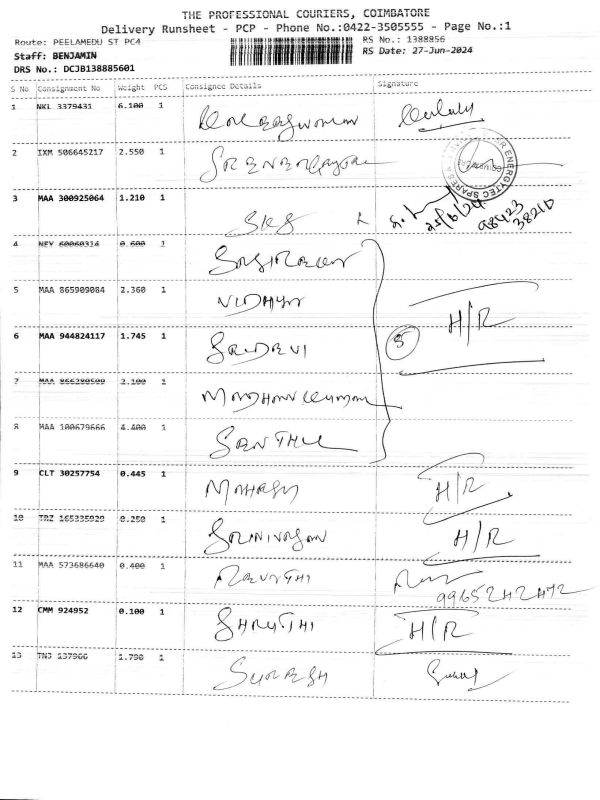 THE PROFESSIONAL COURIERS, COIMBATORE
Delivery Runsheet - PCP - Phone No.:0422-3505555 - Page No.:1
Route: PEELAMEDU ST PC4 RS No.: 1388856
Staff: BENJAMIN RS Date: 27-Jun-2024
DRS No.: DCJB138885601
S No Consignment No Weight PCS Consignee Details Signature
1 NKL 3379431 6.100 1
2 IXM 506645217 2.550 1
ENERGYTEC SPARES
3 MAA 300925064 1.210 1 SKS
98423
3821D
4 NEY 60060314 0.600 1
5 MAA 865909084 2.360 1 VIDHYA
5 H/R
6 MAA 944824117 1.745 1 SRIDEVI
7 MAA 866280509 2.100 1
8 MAA 100679666 4.400 1 SENTHIL
9 CLT 30257754 0.445 1 MAHESH H/R
10 TRZ 165335929 0.250 1 SRINIVASAN H/R
11 MAA 573686640 0.400 1 REVATHI
12 CMM 924952 0.100 1 SHRUTHI H/R
13 TNJ 137966 1.790 1 SURESH